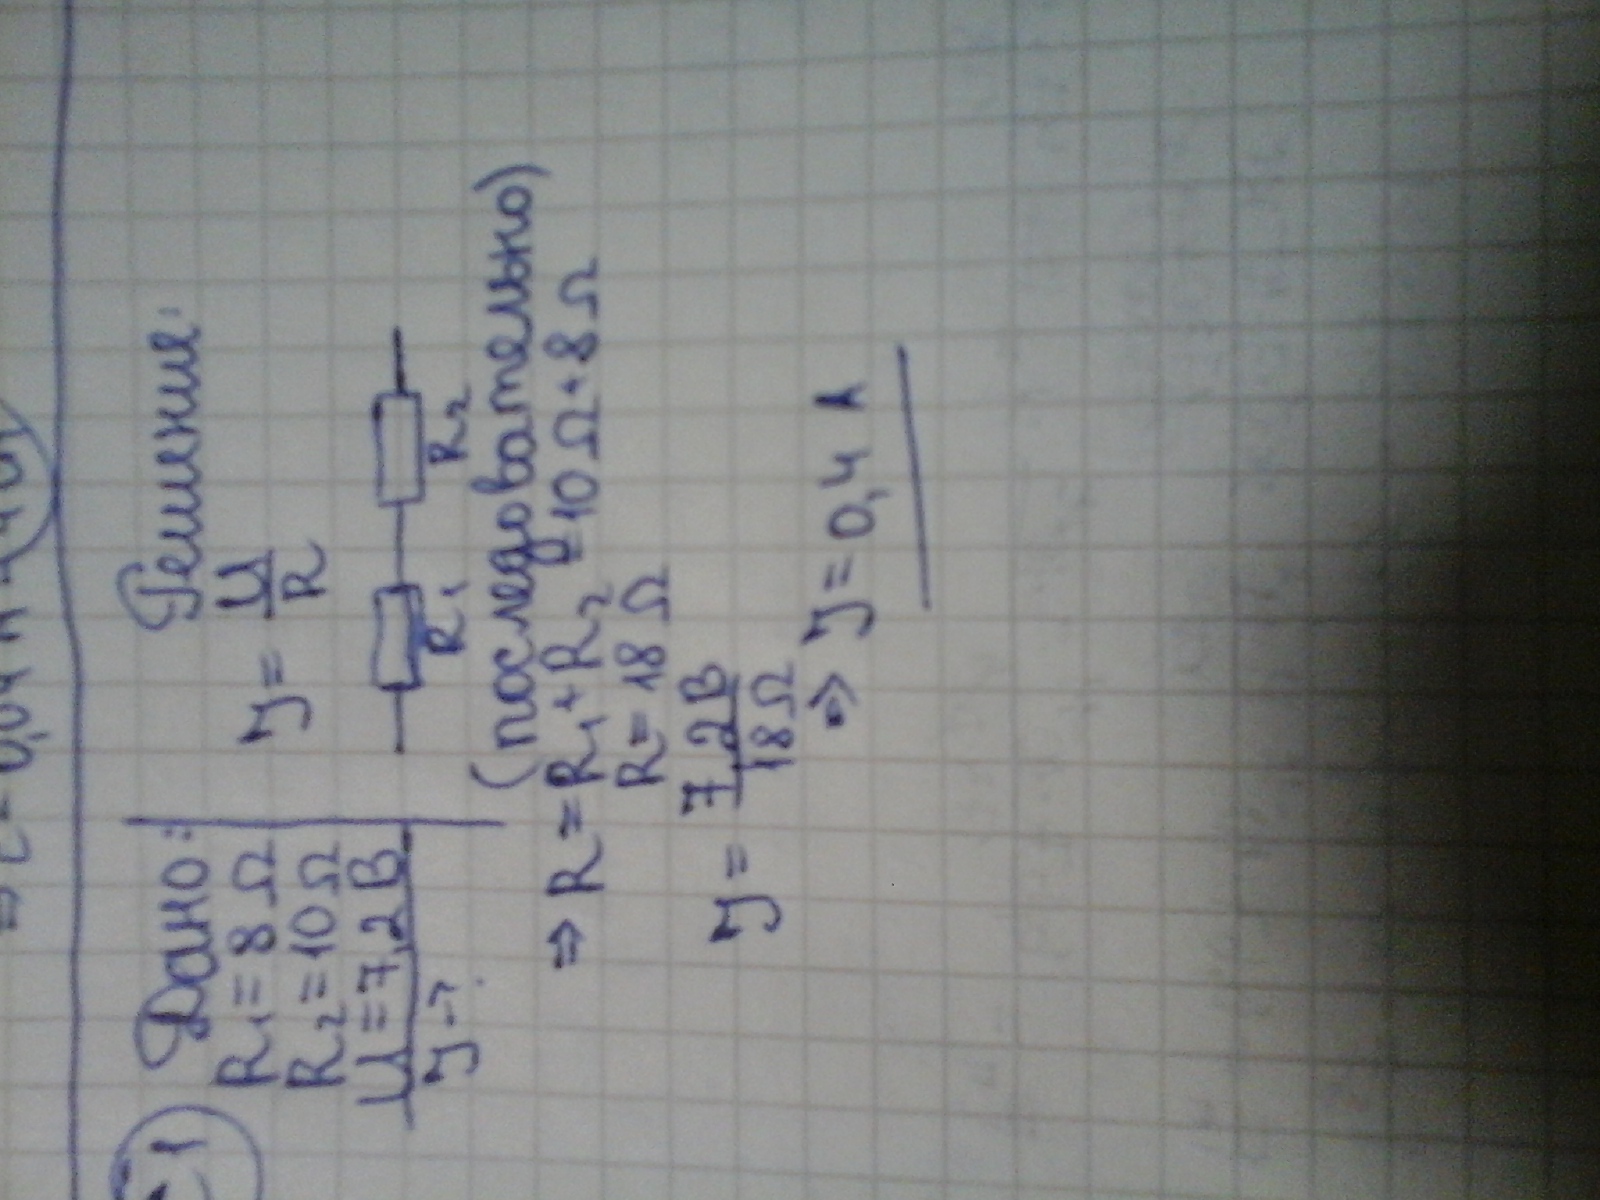 1
Дано:
R₁ = 8 Ω
R₂ = 10 Ω
U = 7,2 В
У-?
Решение:
У = U/R
R₁ R₂
(последовательно)
⇒ R = R₁ + R₂ = 10 Ω + 8 Ω
R = 18 Ω
У = 7,2 В / 18 Ω
⇒ У = 0,4 А